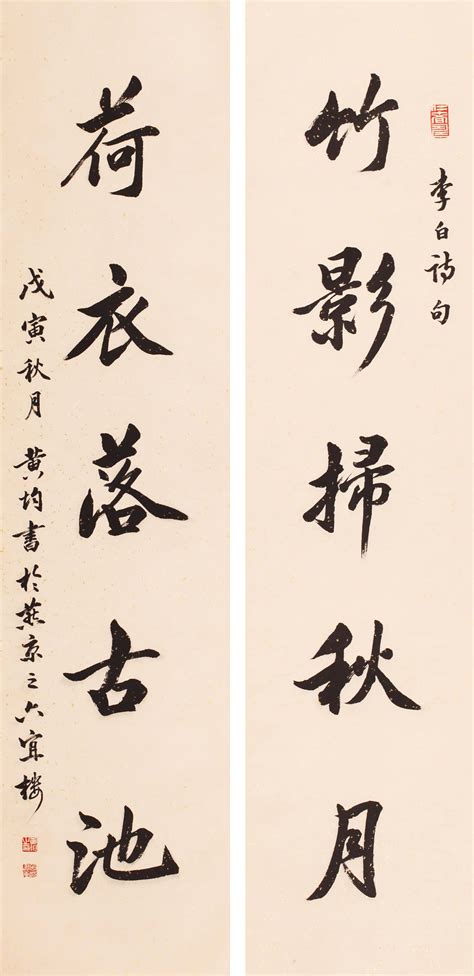 李白诗句
竹影掃秋月
荷衣落古池
戊寅秋月黄均書於燕京之六宜楼